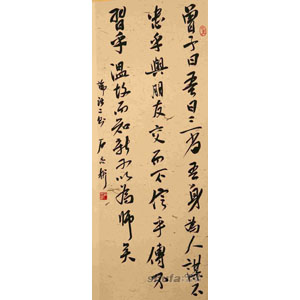 曾子曰吾日三省吾身為人謀不
忠乎與朋友交而不信乎傳不
習乎溫故而知新可以為師矣
論語二則